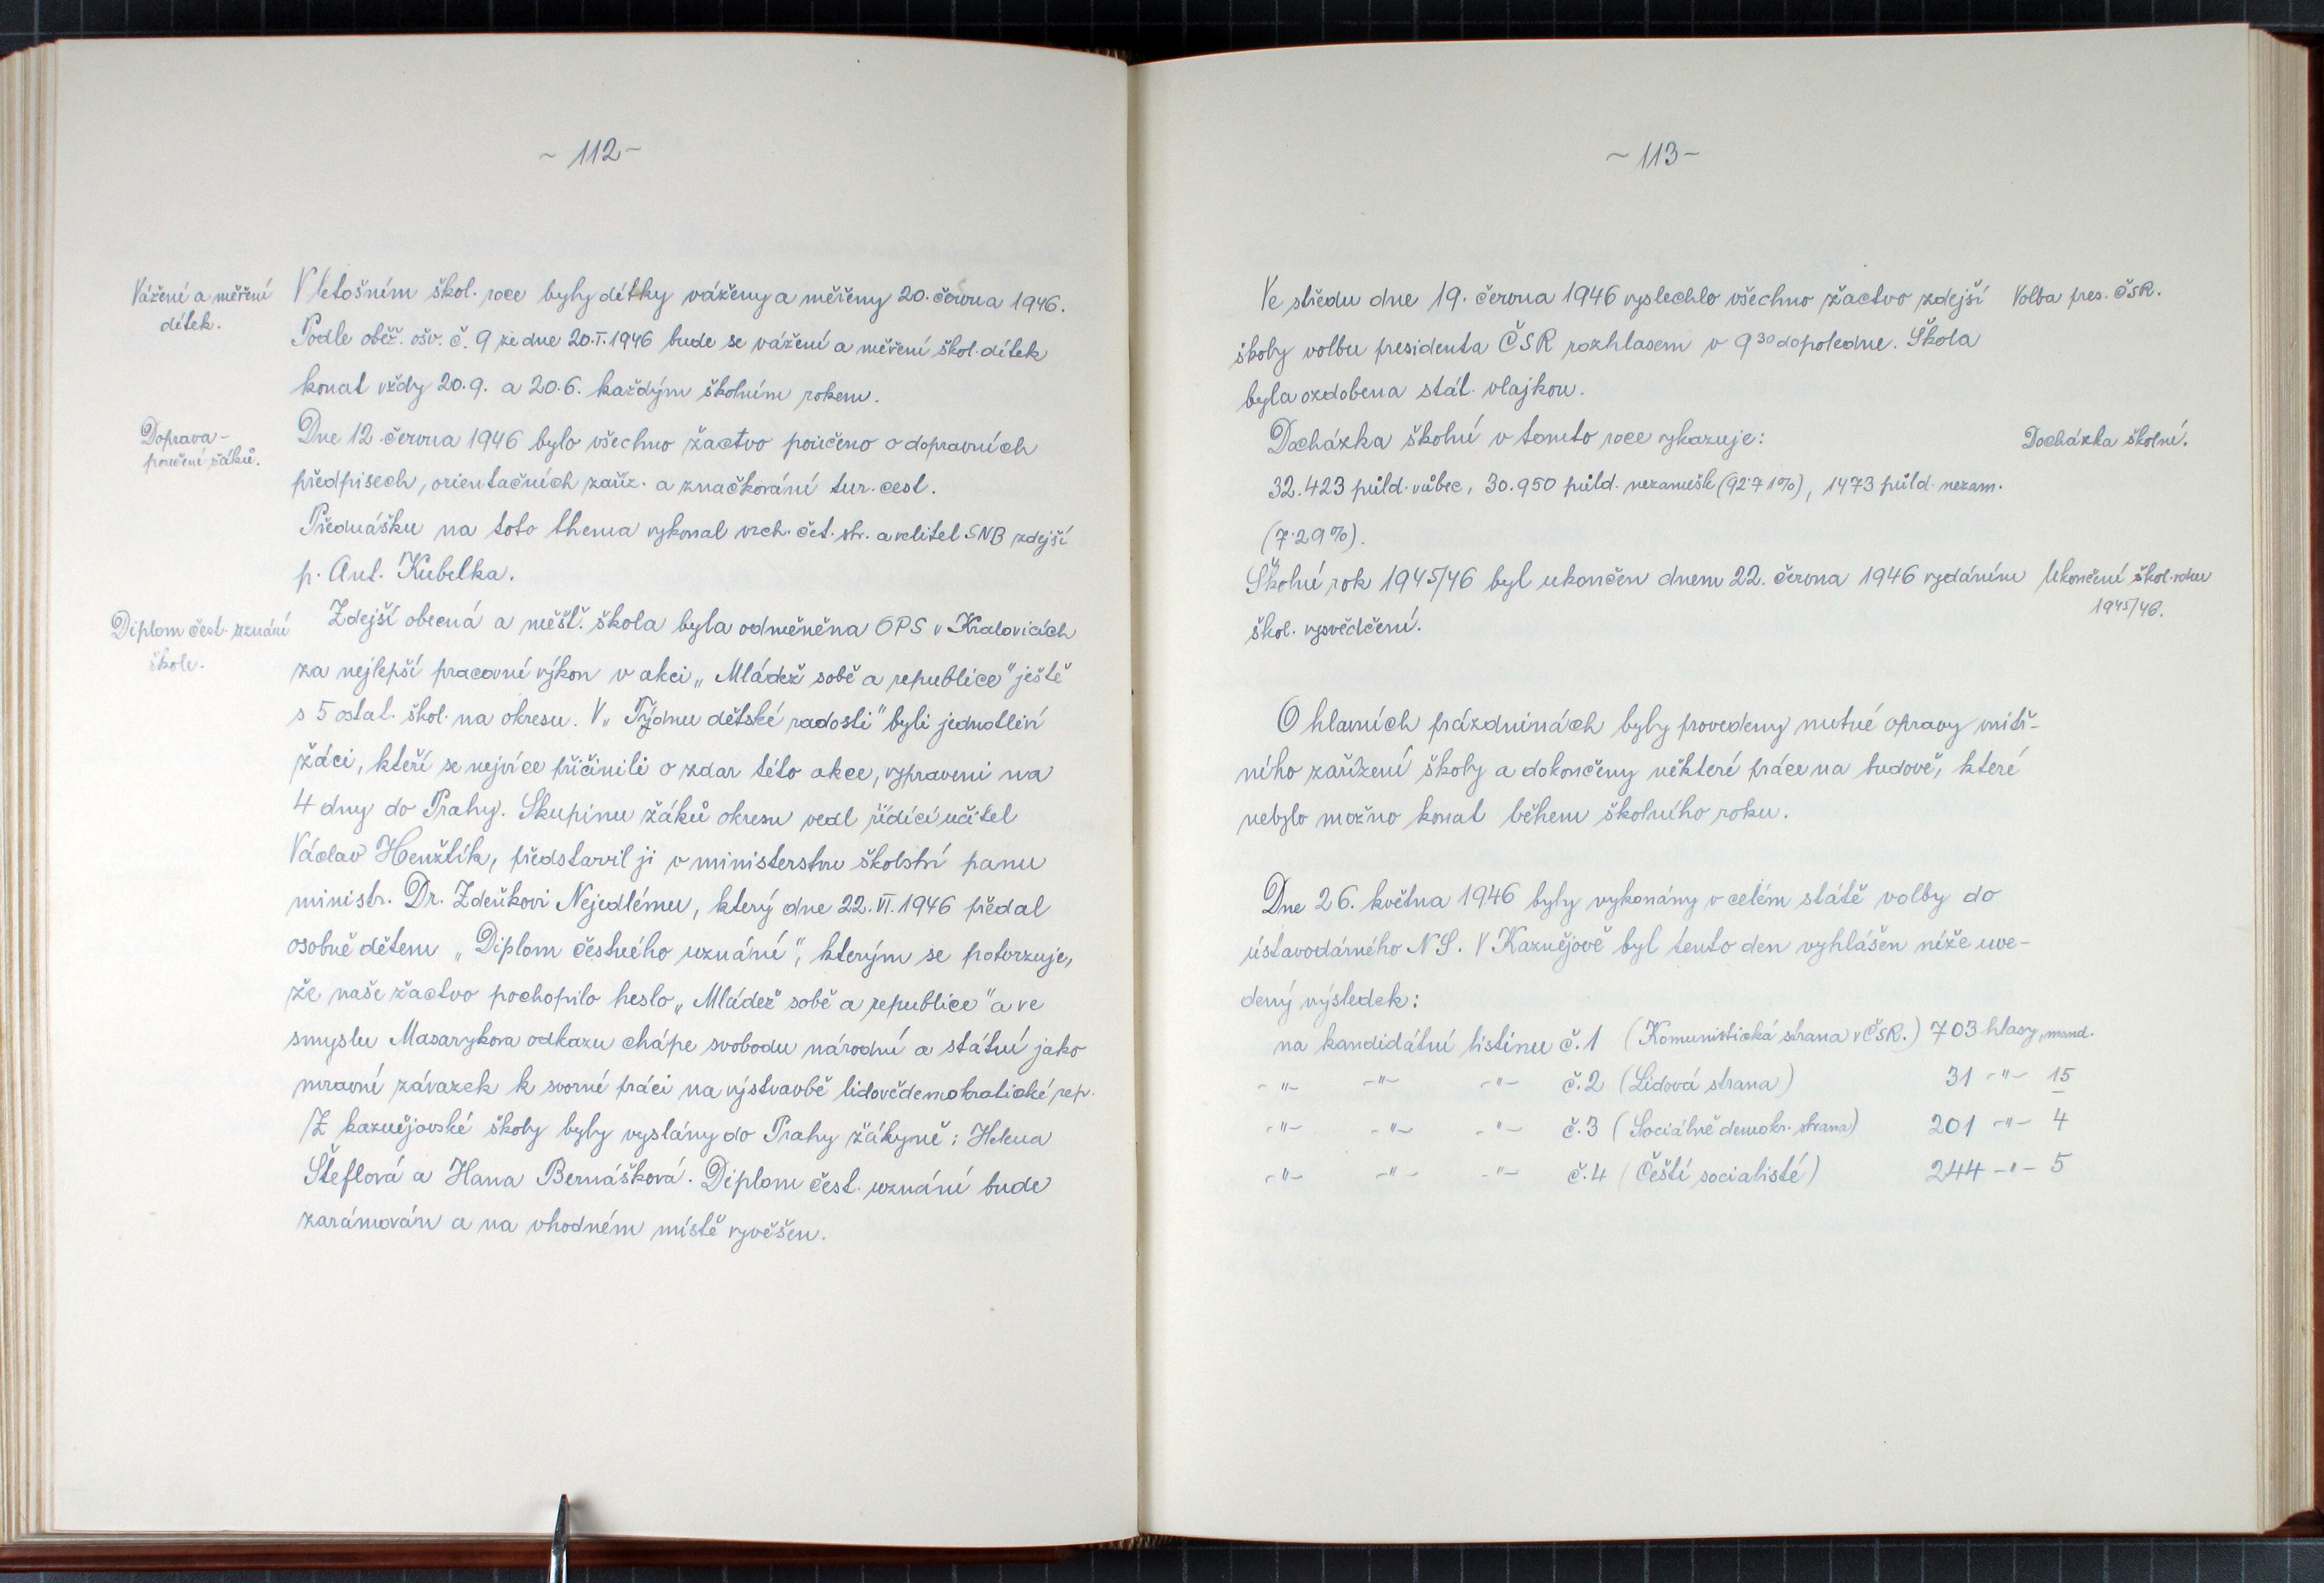 ~ 112 ~
Vážení a měření
dítek.
V letošním škol. roce byly dítky váženy a měřeny 20. června 1946.
Podle oběž. ošv. č. 9 ze dne 20.I.1946 bude se vážení a měření škol. dítek
konat vždy 20.9. a 20.6. každým školním rokem.
Doprava -
poučení žáků.
Dne 12. června 1946 bylo všechno žactvo poučeno o dopravních
předpisech, orientačních zaříz. a značkování tur. cest.
Přednášku na toto thema vykonal vrch. čet. str. a velitel SNB zdejší
p. Ant. Kubelka.
Diplom čest. uznání
škole.
Zdejší obecná a měšť. škola byla odměněna OPS v Kralovicích
za nejlepší pracovní výkon v akci „Mládež sobě a republice" ještě
s 5 ostat. škol. na okresu. V „Týdnu dětské radosti" byli jednotliví
žáci, kteří se nejvíce přičinili o zdar této akce, vypraveni na
4 dny do Prahy. Skupinu žáků okresu vedl řídící učitel
Václav Henžlík, představil ji v ministerstvu školství panu
ministr. Dr. Zdeňkovi Nejedlému, který dne 22.VI.1946 předal
osobně dětem „Diplom čestného uznání", kterým se potvrzuje,
že naše žactvo pochopilo heslo „Mládež sobě a republice" a ve
smyslu Masarykova odkazu chápe svobodu národní a státní jako
mravní závazek k svorné práci na výstavbě lidovědemokratické rep.
Z kaznějovské školy byly vyslány do Prahy žákyně: Helena
Šteflová a Hana Bernášková. Diplom čest. uznání bude
zarámován a na vhodném místě vyvěšen.
~ 113 ~
Ve středu dne 19. června 1946 vyslechlo všechno žactvo zdejší
Volba pres. ČSR.
školy volbu presidenta ČSR rozhlasem v 9³⁰ dopoledne. Škola
byla ozdobena stát. vlajkou.
Docházka školní v tomto roce vykazuje:
Docházka školní.
32.423 půld. vůbec, 30.950 půld. nezamešk (92·71%), 1473 půld. nezam.
(7·29%).
Školní rok 1945/46 byl ukončen dnem 22. června 1946 vydáním
Ukončení škol. roku
1945/46.
škol. vysvědčení.
O hlavních prázdninách byly provedeny nutné opravy vnitř-
ního zařízení školy a dokončeny některé práce na budově, které
nebylo možno konat během školního roku.
Dne 26. května 1946 byly vykonány v celém státě volby do
ústavodárného N S. V Kaznějově byl tento den vyhlášen níže uve-
dený výsledek:
na kandidátní listinu č. 1 (Komunistická strana v ČSR.) 703 hlasy, mand.
-"- -"- -"- č. 2 (Lidová strana) 31 -"- 15
-"- -"- -"- č. 3 (Sociálně demokr. strana) 201 -"- 4
-"- -"- -"- č. 4 (Čeští socialisté) 244 -"- 5